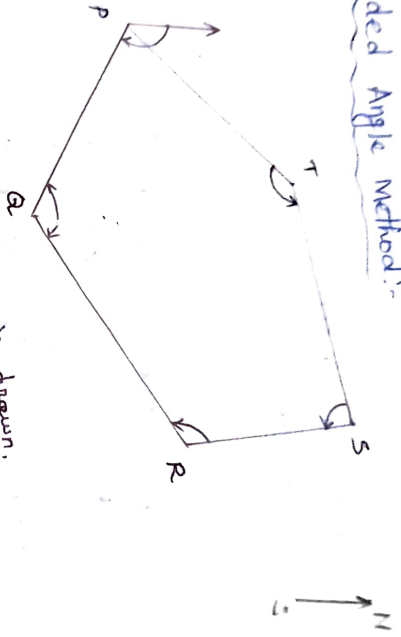 ded Angle Method :-
P
T
Q
S
R
N
drawn.